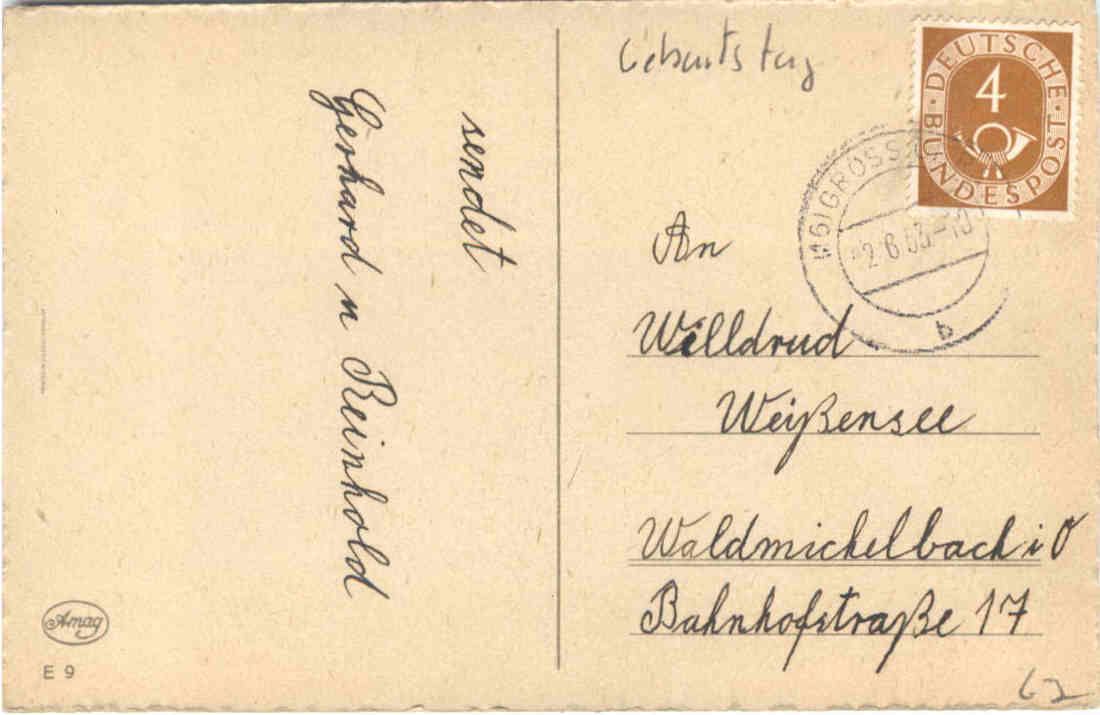 sendet
Gerhard u Reinhold
Geburtstag
DEUTSCHE
BUNDESPOST
4
(16) GROSS
2.6.53-10
b
An
Willdrud
Weißensee
Waldmichelbach i O
Bahnhofstraße 17
Amag
E 9